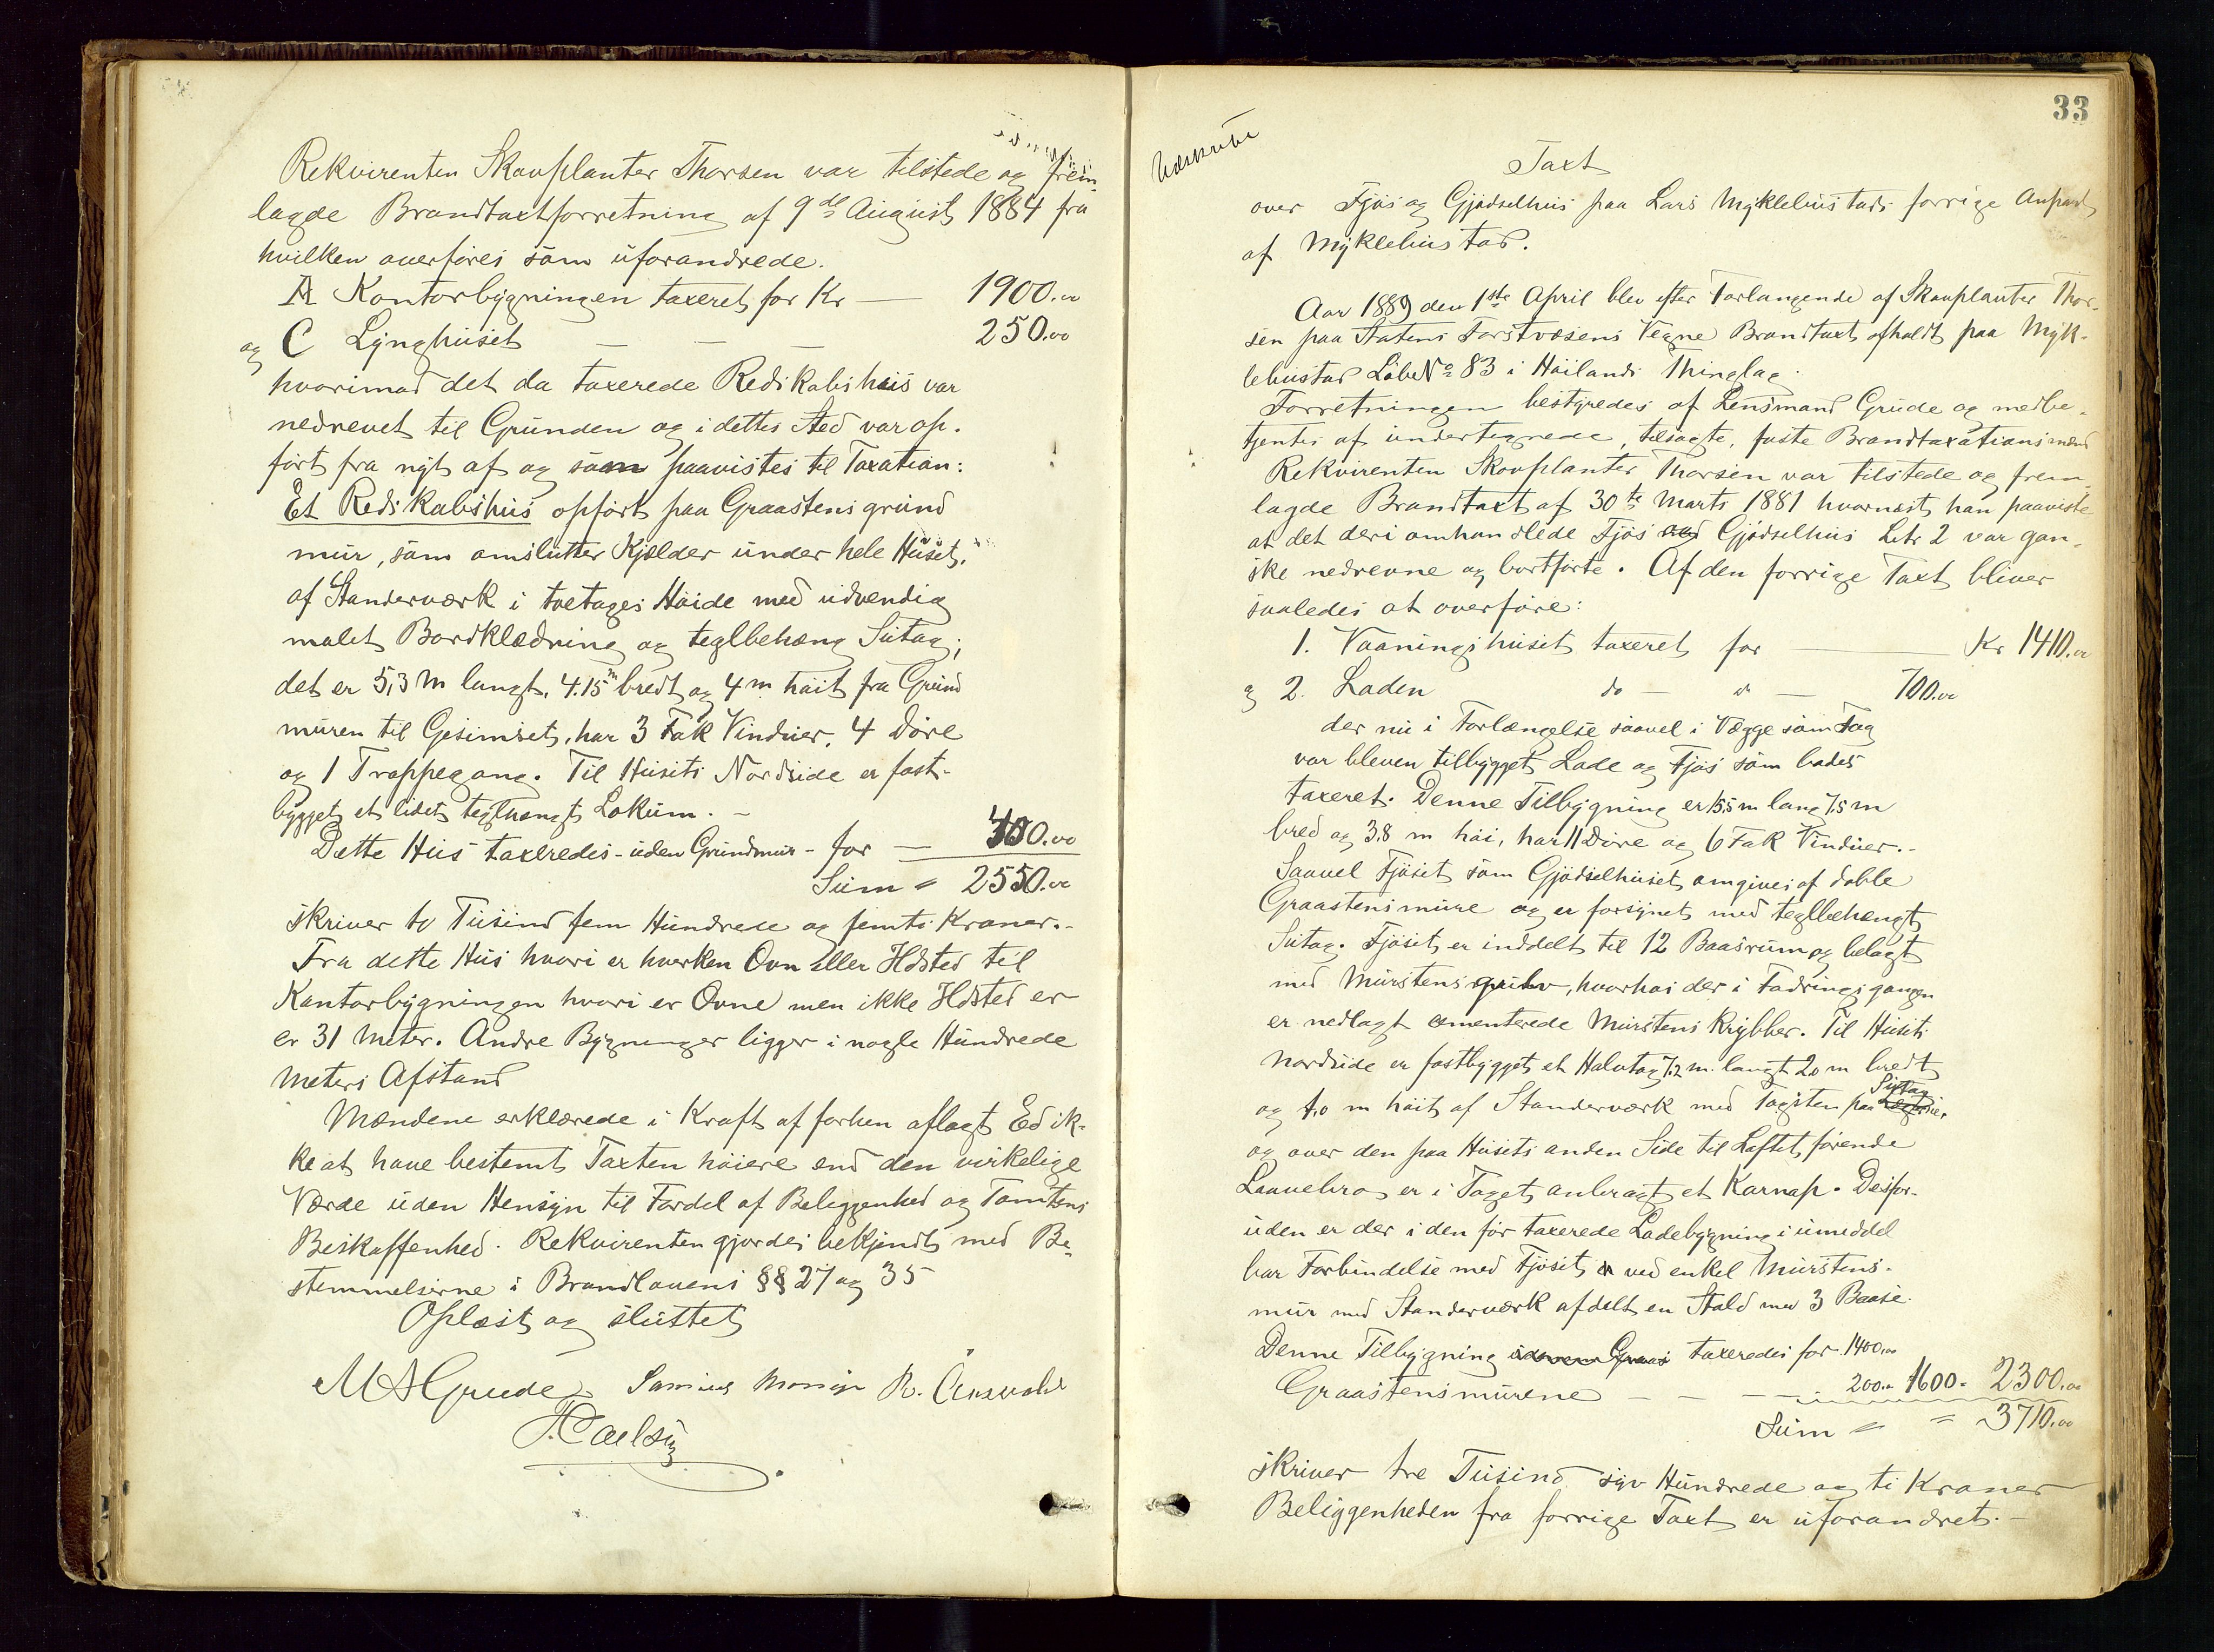 Rekvirenten Skovplanter Thorsen var tilstede og frem-
lagde Brandtaxtforretning af 9de August 1884 fra
hvilken overføres som uforandrede.
A Kontorbygningen taxeret for Kr — 1900.00
og C Lynghuset — — — 250.00
hvorimod det da taxerede Redskabshuis var
nedrevet til Grunden og i dettes Sted var op-
ført fra nyt af og som paavistes til Taxation:
Et Redskabshus opført paa Graastensgrund
mur, som omslutter Kjælder under hele Huset,
af Standerværk i toetages Høide med udvendig
malet Bordklædning og teglbehæng Sutag;
det er 5,3 m langt, 4.15 m bredt og 4 m høit fra Grund
muren til Gesimset, har 3 Fak Vinduer, 4 Døre
og 1 Trappegang. Til Husets Nordside er fast-
bygget et lidet teglhængt Lokum. –
Dette Hus taxeredes - uden Grundmur - for — 400.00
Sum = 2550.00
skriver to Tusind fem Hundrede og femti Kroner.-
Fra dette Hus hvori er hverken Ovn eller Ildsted til
Kontorbygningen hvori er Ovne men ikke Ildsted er
er 31 Meter. Andre Bygninger ligger i nogle Hundrede
Meters Afstand
Mændene erklærede i Kraft af forhen aflagt Ed ik-
ke at have bestemt Taxten høiere end den virkelige
Værde uden Hensyn til Fordel af Beliggenhed og Tomtens
Beskaffenhed. Rekvirenten gjordes bekjendt med Be-
stemmelserne i Brandlovens §§ 27 og 35
Oplæst og sluttet
M A Grude
33
Taxt
over Fjøs og Gjødselhus paa Lars Myklebustads forrige Anpart
af Myklebustad.
Aar 1889 den 1ste April blev efter Forlangende af Skovplanter Thor-
sen paa Statens Forstvæsens Vegne Brandtaxt afholdt paa Myk-
lebustad Løbe No 83 i Høilands Thinglag.
Forretningen bestyredes af Lensmand Grude og medbe-
tjentes af undertegnede, tilsagte, faste Brandtaxationsmænd
Rekvirenten Skovplanter Thorsen var tilstede og frem-
lagde Brandtaxt af 30te Marts 1881 hvornæst han paaviste
at det deri omhandlede Fjøs med Gjødselhus Litr 2 var gan-
ske nedrevne og bortførte. Af den forrige Taxt bliver
saaledes at overføre:
1. Vaaningshuset taxeret for — Kr 1410.00
og 2. Laden do — do — 700.00
der nu i Forlængelse saavel i Vægge som Tag
var bleven tilbygget Lade og Fjøs som bades
taxeret. Denne Tilbygning er 15,5 m lang 7.5 m
bred og 3.8 m høi, har 11 Døre og 6 Fak Vinduer.-
Saavel Fjøset som Gjødselhuset omgives af doble
Graastensmure og er forsynet med teglbehængt
Sutag. Fjøset er inddelt til 12 Baasrum og belagt
med Murstensgulv, hvorhos der i Fodringsgangen
er nedlagt cementerede Murstens Krybber. Til Husets
Nordside er fastbygget et Halvtag 7.2 m. langt 2.0 m bredt
og 4.0 m høit af Standerværk med Tagsten paa Sutag
og over den paa Husets anden Side til Loftet førende
Laavebro er i Taget anbragt et Karnap. Desfor-
uden er der i den før taxerede Ladebygning i umiddel
bar Forbindelse med Fjøset ved enkel Murstens-
mur med Standerværk afdelt en Stald med 3 Baase.
Denne Tilbygning taxeredes for 1400.00
Graastensmurene — — — 200.00 1600 = 2300.00
Sum = = 3710.00
skriver tre Tusind syv Hundrede og ti Kroner
Beliggenheden fra forrige Taxt er uforandret.-